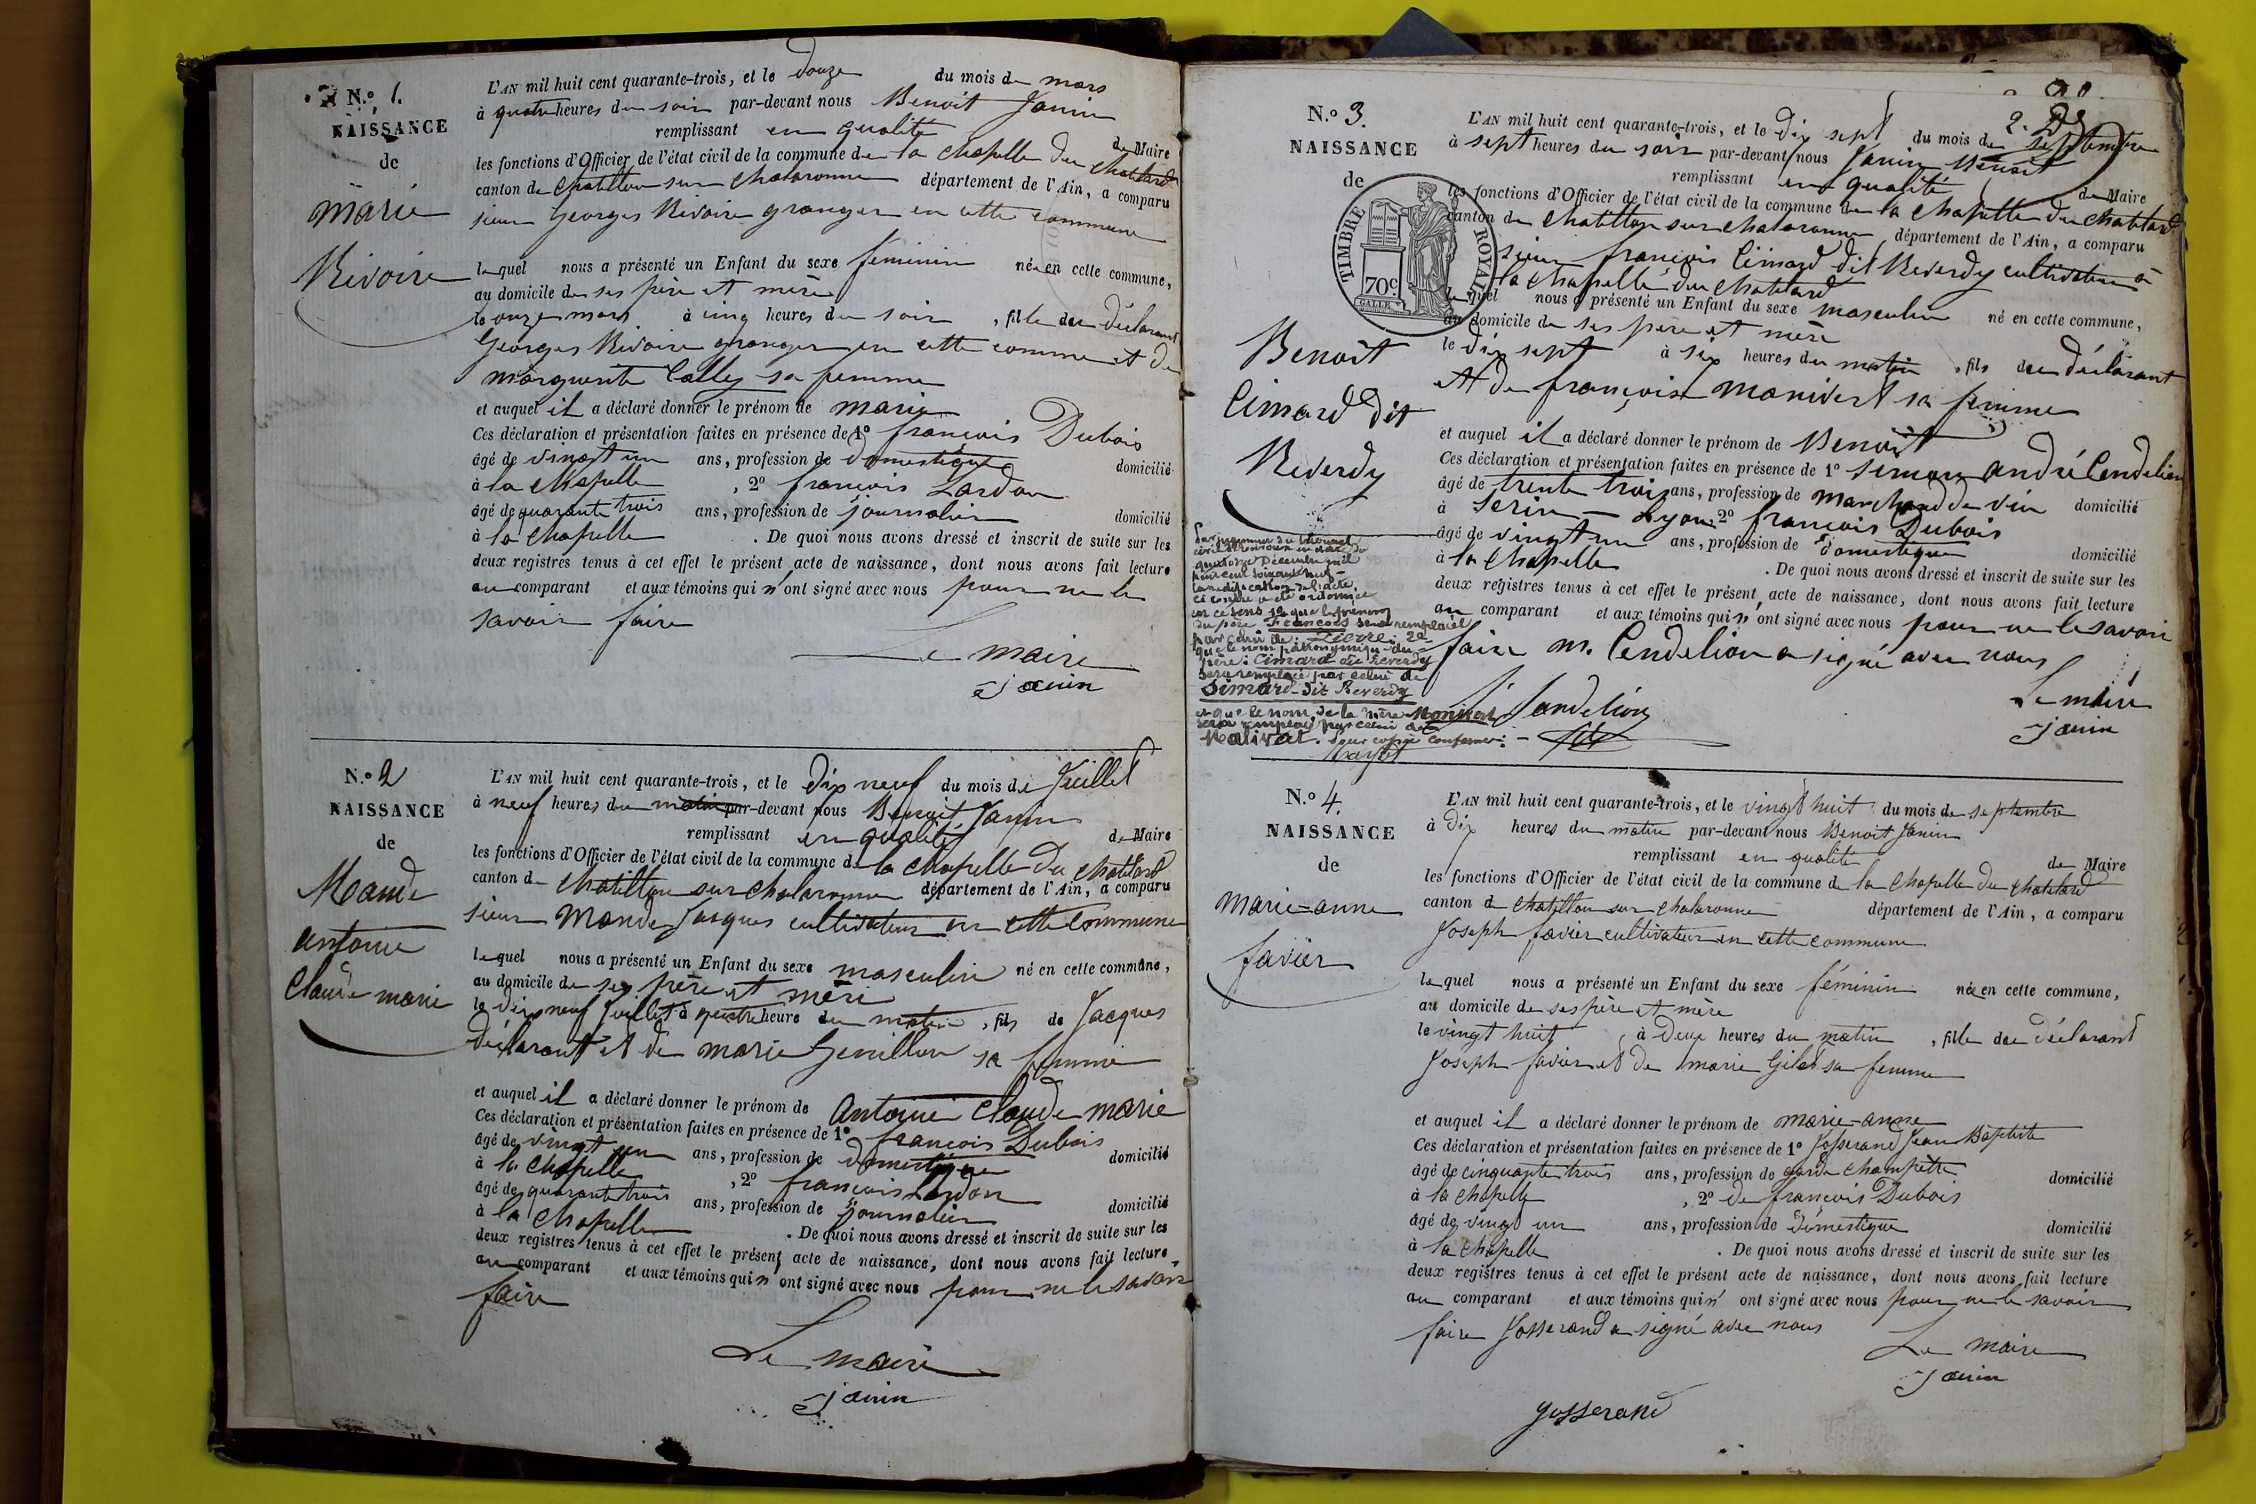 N.º 1.
NAISSANCE
de
marie
Rivoire
L'AN mil huit cent quarante-trois, et le douze du mois de mars
à quatre heures du soir par-devant nous Benoit Janin
remplissant en qualité de Maire
les fonctions d'Officier de l'état civil de la commune de la chapelle du chatelard
canton de chatillon sur chalaronne département de l'Ain, a comparu
sieur Georges Rivoire granger en cette commune
lequel nous a présenté un Enfant du sexe féminin née en cette commune,
au domicile de ses père et mère
le onze mars à cinq heures du soir, fille du déclarant
Georges Rivoire granger en cette comme et de
marguerite Cally sa femme
et auquel il a déclaré donner le prénom de marie
Ces déclaration et présentation faites en présence de 1º françois Dubois
âgé de vingt un ans, profession de domestique domicilié
à la chapelle, 2º françois Lardon
âgé de quarante trois ans, profession de journalier domicilié
à la chapelle. De quoi nous avons dressé et inscrit de suite sur les
deux registres tenus à cet effet le présent acte de naissance, dont nous avons fait lecture
au comparant et aux témoins qui n'ont signé avec nous pour ne le
savoir faire
Le maire
janin
N.º 2
NAISSANCE
de
Mande
antoine
Claude marie
L'AN mil huit cent quarante-trois, et le dix neuf du mois de Juillet
à neuf heures du matin par-devant nous Benoit Janin
remplissant en qualité de Maire
les fonctions d'Officier de l'état civil de la commune de la chapelle du chatelard
canton de chatillon sur chalaronne département de l'Ain, a comparu
sieur Mande Jacques cultivateur en cette commune
lequel nous a présenté un Enfant du sexe masculin né en cette commune,
au domicile de ses père et mère
le dix neuf Juillet à quatre heure du matin, fils de Jacques
déclarant et de marie Genillon sa femme
et auquel il a déclaré donner le prénom de antoine Claude marie
Ces déclaration et présentation faites en présence de 1º françois Dubois
âgé de vingt un ans, profession de domestique domicilié
à la chapelle, 2º françois Lardon
âgé de quarante trois ans, profession de journalier domicilié
à la chapelle. De quoi nous avons dressé et inscrit de suite sur les
deux registres tenus à cet effet le présent acte de naissance, dont nous avons fait lecture
au comparant et aux témoins qui n'ont signé avec nous pour ne le savoir
faire
Le maire
janin
N.º 3.
NAISSANCE
de
TIMBRE ROYAL
70c
Benoit
Cimard dit
Reverdy
L'AN mil huit cent quarante-trois, et le dix sept du mois de septembre
à sept heures du soir par-devant nous Janin Benoit
remplissant en qualité de Maire
les fonctions d'Officier de l'état civil de la commune de la chapelle du chatelard
canton de chatillon sur chalaronne département de l'Ain, a comparu
sieur françois Cimard dit Reverdy cultivateur à
la chapelle du chatelard
lequel nous a présenté un Enfant du sexe masculin né en cette commune,
au domicile de ses père et mère
le dix sept à six heures du matin, fils du déclarant
et de françoise manivert sa femme
et auquel il a déclaré donner le prénom de Benoit
Ces déclaration et présentation faites en présence de 1º simon andré Cendelion
âgé de trente trois ans, profession de marchand de vin domicilié
à serin Lyon 2º françois Dubois
âgé de vingt un ans, profession de domestique domicilié
à la chapelle. De quoi nous avons dressé et inscrit de suite sur les
deux registres tenus à cet effet le présent acte de naissance, dont nous avons fait lecture
au comparant et aux témoins qui n'ont signé avec nous pour ne le savoir
faire m. Cendelion a signé avec nous
Le maire
janin
Par jugement du tribunal
civil de en date du
quatorze Décembre mil
neuf cent
la rectification de l'acte
ci contre a été ordonnée
en ce sens que le prénom
du père François sera remplacé
par celui de: Pierre; 2º
que le nom patronymique du
père: Cimard dit Reverdy
sera remplacé par celui de
Simard dit Reverdy
et que le nom de la mère Manivert
sera remplacé par celui de
Malivat. Pour copie conforme:
N.º 4.
NAISSANCE
de
marie-anne
favier
L'AN mil huit cent quarante-trois, et le vingt huit du mois de septembre
à dix heures du matin par-devant nous Benoit Janin
remplissant en qualité de Maire
les fonctions d'Officier de l'état civil de la commune de la chapelle du chatelard
canton de chatillon sur chalaronne département de l'Ain, a comparu
Joseph favier cultivateur en cette commune
lequel nous a présenté un Enfant du sexe féminin née en cette commune,
au domicile de ses père et mère
le vingt huit à deux heures du matin, fille du déclarant
Joseph favier et de marie Gilet sa femme
et auquel il a déclaré donner le prénom de marie-anne
Ces déclaration et présentation faites en présence de 1º Josserand Jean Baptiste
âgé de cinquante trois ans, profession de garde champêtre domicilié
à la chapelle, 2º de françois Dubois
âgé de vingt un ans, profession de domestique domicilié
à la chapelle. De quoi nous avons dressé et inscrit de suite sur les
deux registres tenus à cet effet le présent acte de naissance, dont nous avons fait lecture
au comparant et aux témoins qui n'ont signé avec nous pour ne le savoir
faire Josserand a signé avec nous
Le maire
janin
Josserand